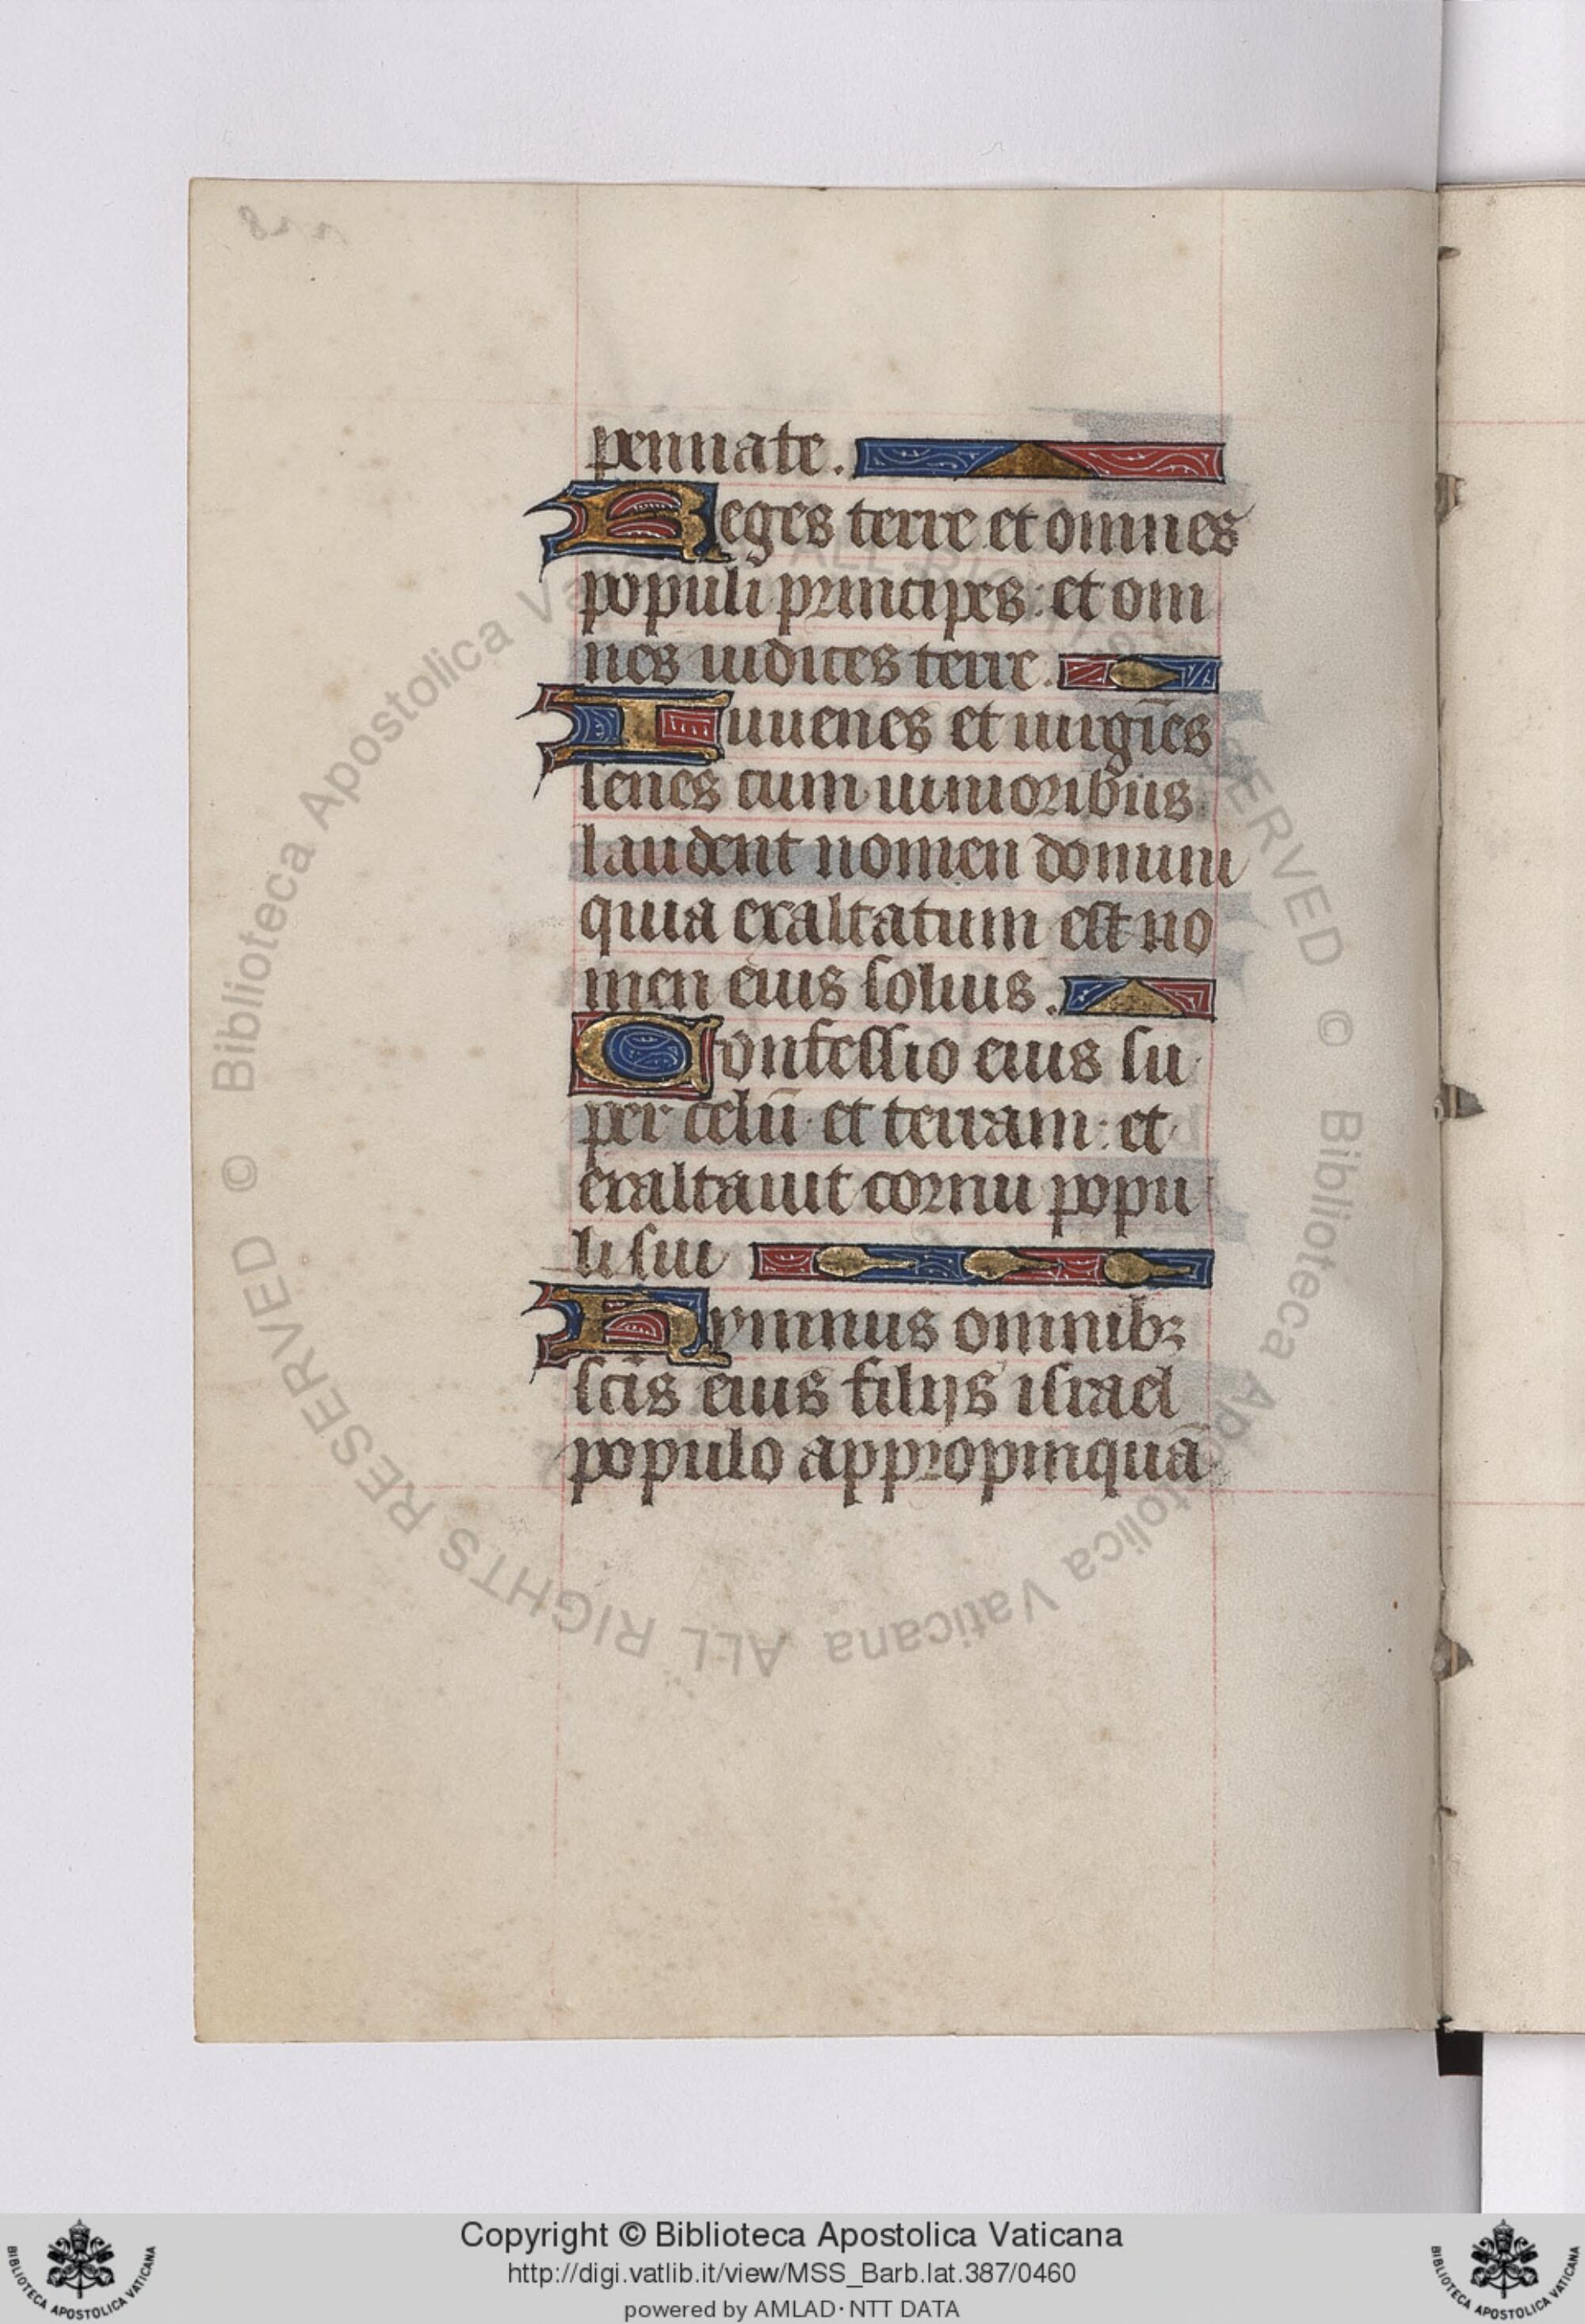 pennate.
Reges terre et omnes
populi principes: et om
nes iudices terre.
Iuuenes et uirgīēs
senes cum iunioribus
laudent nomen domini
quia exaltatum est no
men eius solius.
Confessio eius su
per celū et terram: et
exaltauit cornu popu
li sui
Hymnus omnibꝫ
sc̄is eius filijs israel
populo appropinquā
© Biblioteca Apostolica Vaticana ALL RIGHTS RESERVED © Biblioteca Apostolica Vaticana ALL RIGHTS RESERVED
Copyright © Biblioteca Apostolica Vaticana
http://digi.vatlib.it/view/MSS_Barb.lat.387/0460
powered by AMLAD·NTT DATA
BIBLIOTECA APOSTOLICA VATICANA
BIBLIOTECA APOSTOLICA VATICANA